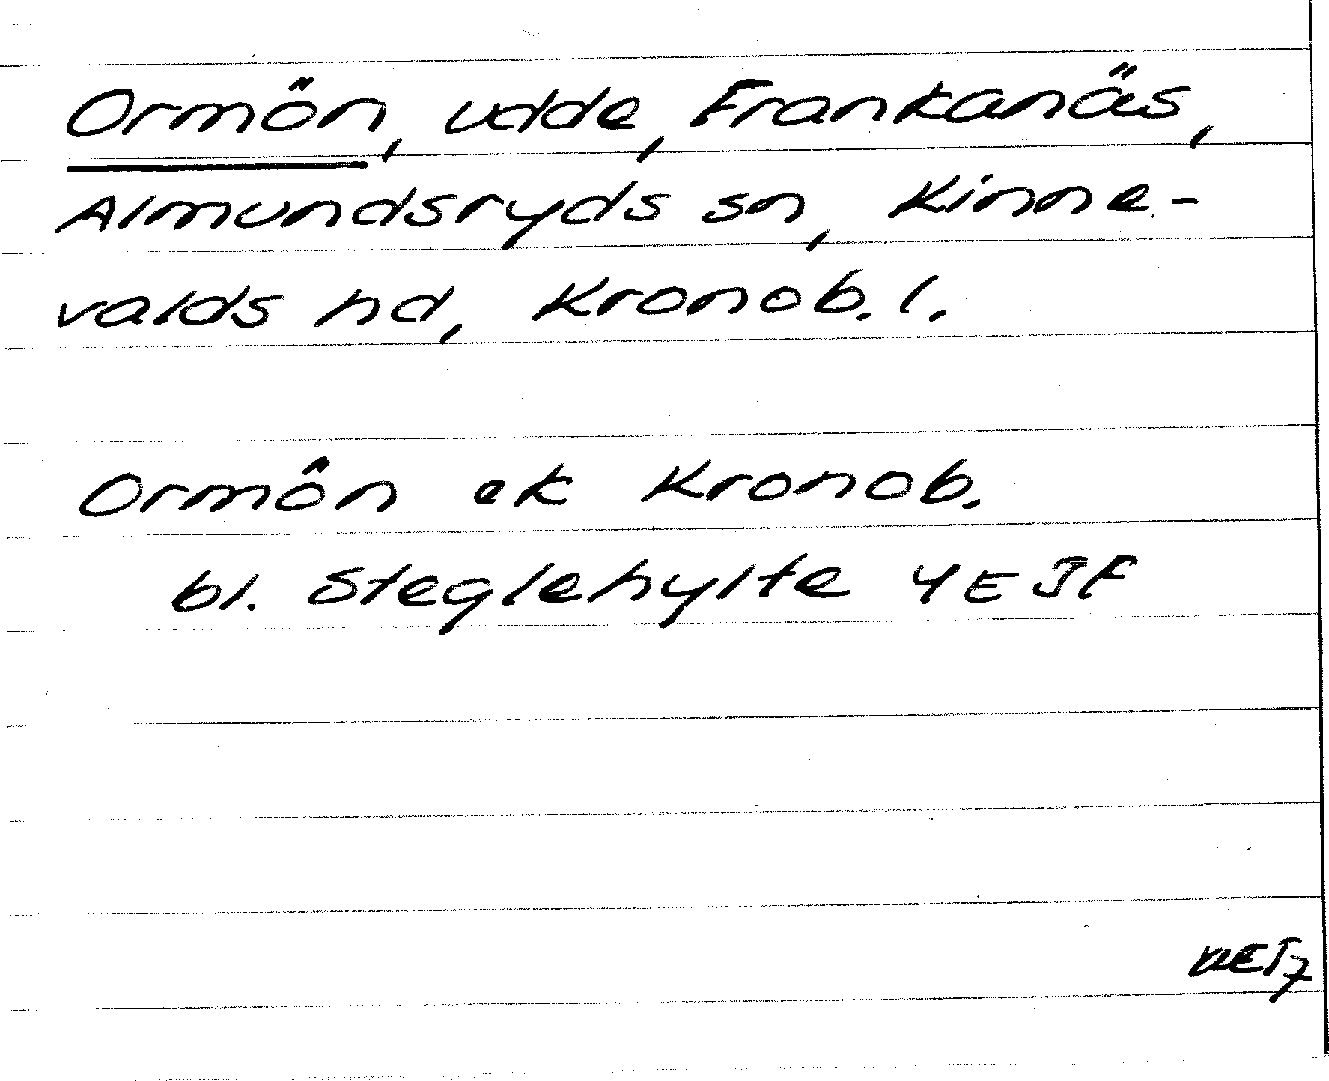 Ormön, udde, Frankanäs,
Almundsryds sn, Kinne-
valds hd, Kronob. l.
Ormön ek Kronob.
bl. Steglehylte 4E JF